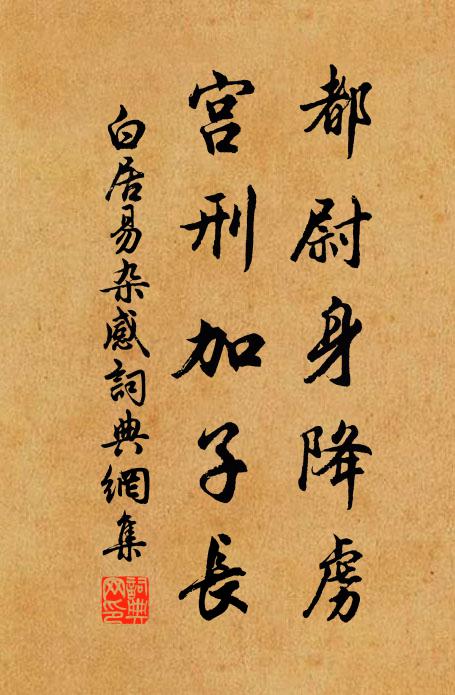 都尉身降虏
宫刑加子長
白居易杂感詞典網集
詞典网印